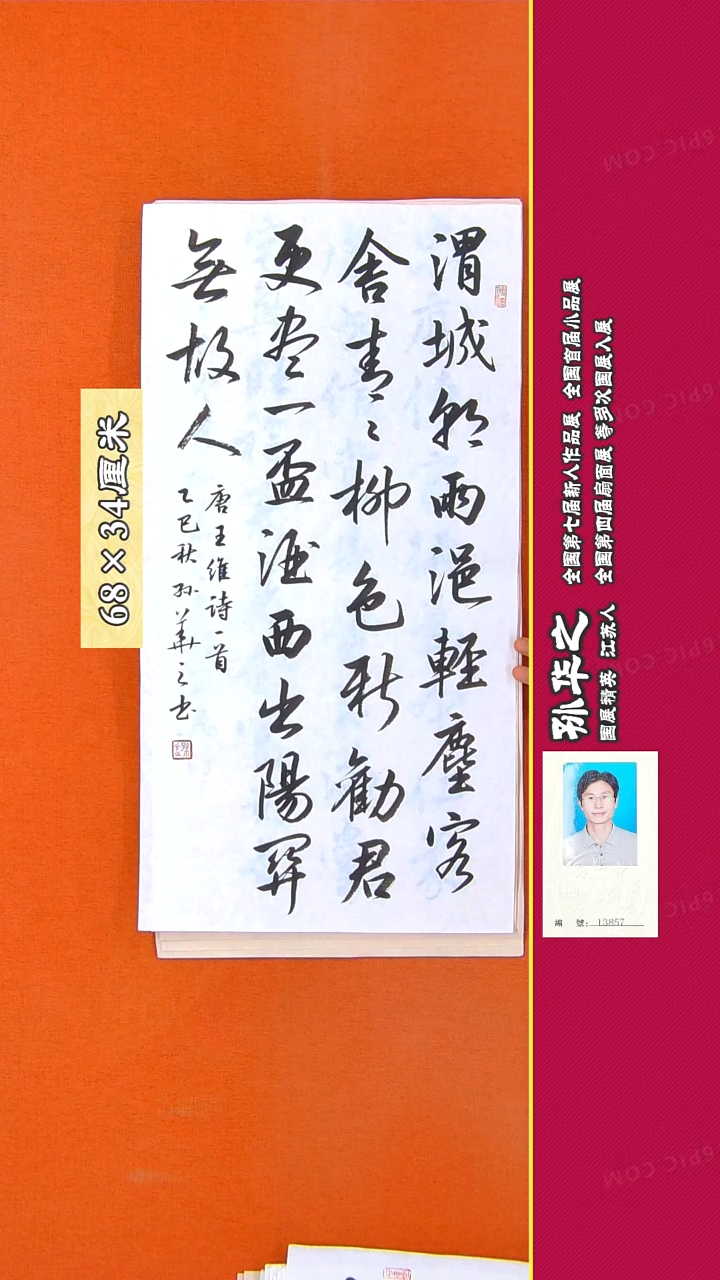 渭城朝雨浥輕塵客
舍青々柳色新勸君
更尽一盃酒西出陽関
無故人
唐王維詩一首
乙巳秋孫華之书
68×34厘米
孙华之
國展精英 江苏人
全國第七届新人作品展 全國首届小品展
全國第四届扇面展 等多次國展入展
編 號: 13857
6PIC.COM
6PIC.COM
6PIC.COM
6PIC.COM
6PIC.COM